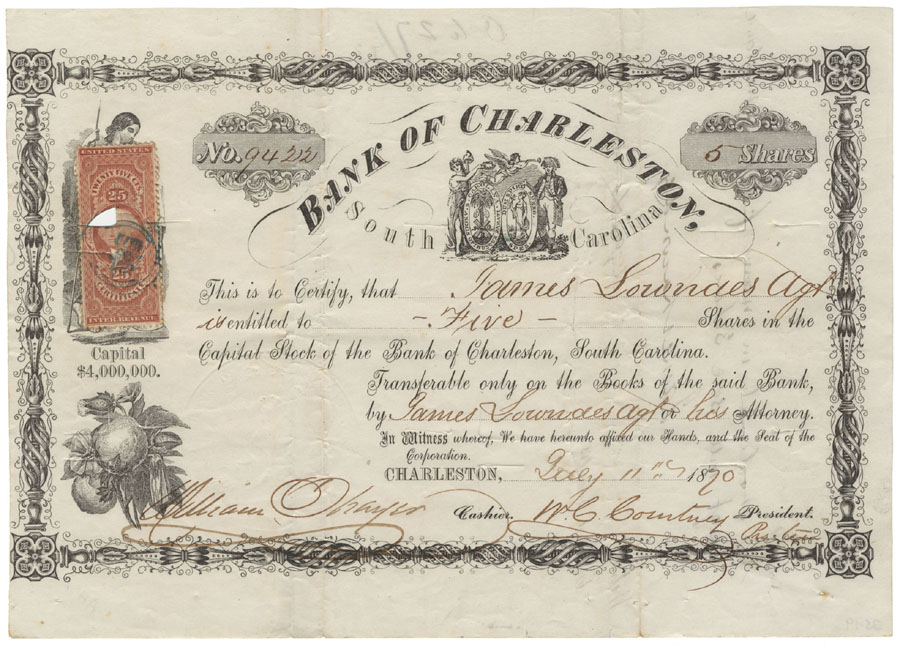 BANK OF CHARLESTON,
South Carolina
No. 9422
5 Shares
UNITED STATES
TWENTY FIVE CTS.
25
25
CERTIFICATE
INTER. REVENUE
Capital
$4,000,000.
This is to Certify, that James Lowndes Agt
is entitled to - Five - Shares in the
Capital Stock of the Bank of Charleston, South Carolina.
Transferable only on the Books of the said Bank,
by James Lowndes Agt or his Attorney.
In Witness whereof, We have hereunto affixed our Hands, and the Seal of the
Corporation.
CHARLESTON, July 11th 1870
William Cashier. W. C. Courtney President.